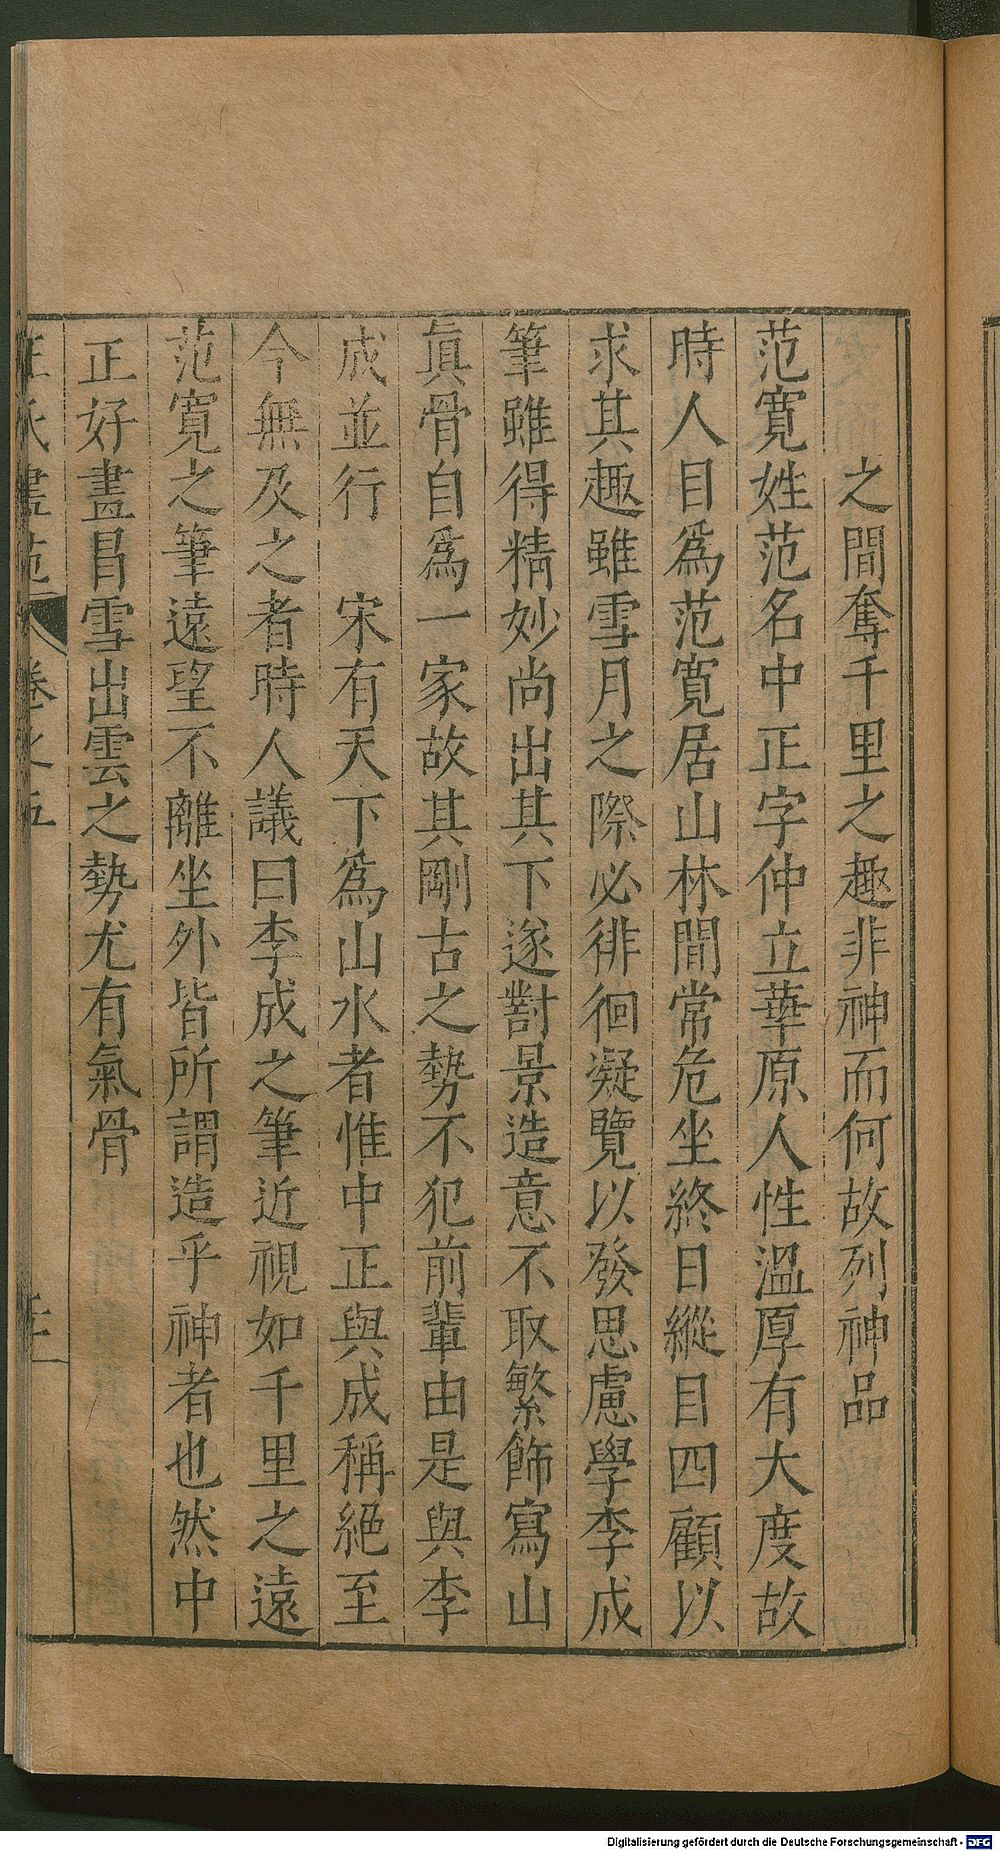 之間奪千里之趣非神而何故列神品
范寬姓范名中正字仲立華原人性溫厚有大度故
時人目爲范寬居山林間常危坐終日縱目四顧以
求其趣雖雪月之際必徘徊凝覽以發思慮學李成
筆雖得精妙尚出其下遂對景造意不取繁飾寫山
眞骨自爲一家故其剛古之勢不犯前輩由是與李
成並行　宋有天下爲山水者惟中正與成稱絕至
今無及之者時人議曰李成之筆近視如千里之遠
范寬之筆遠望不離坐外皆所謂造乎神者也然中
正好畫冒雪出雲之勢尤有氣骨
卷之五
Digitalisierung gefördert durch die Deutsche Forschungsgemeinschaft - DFG